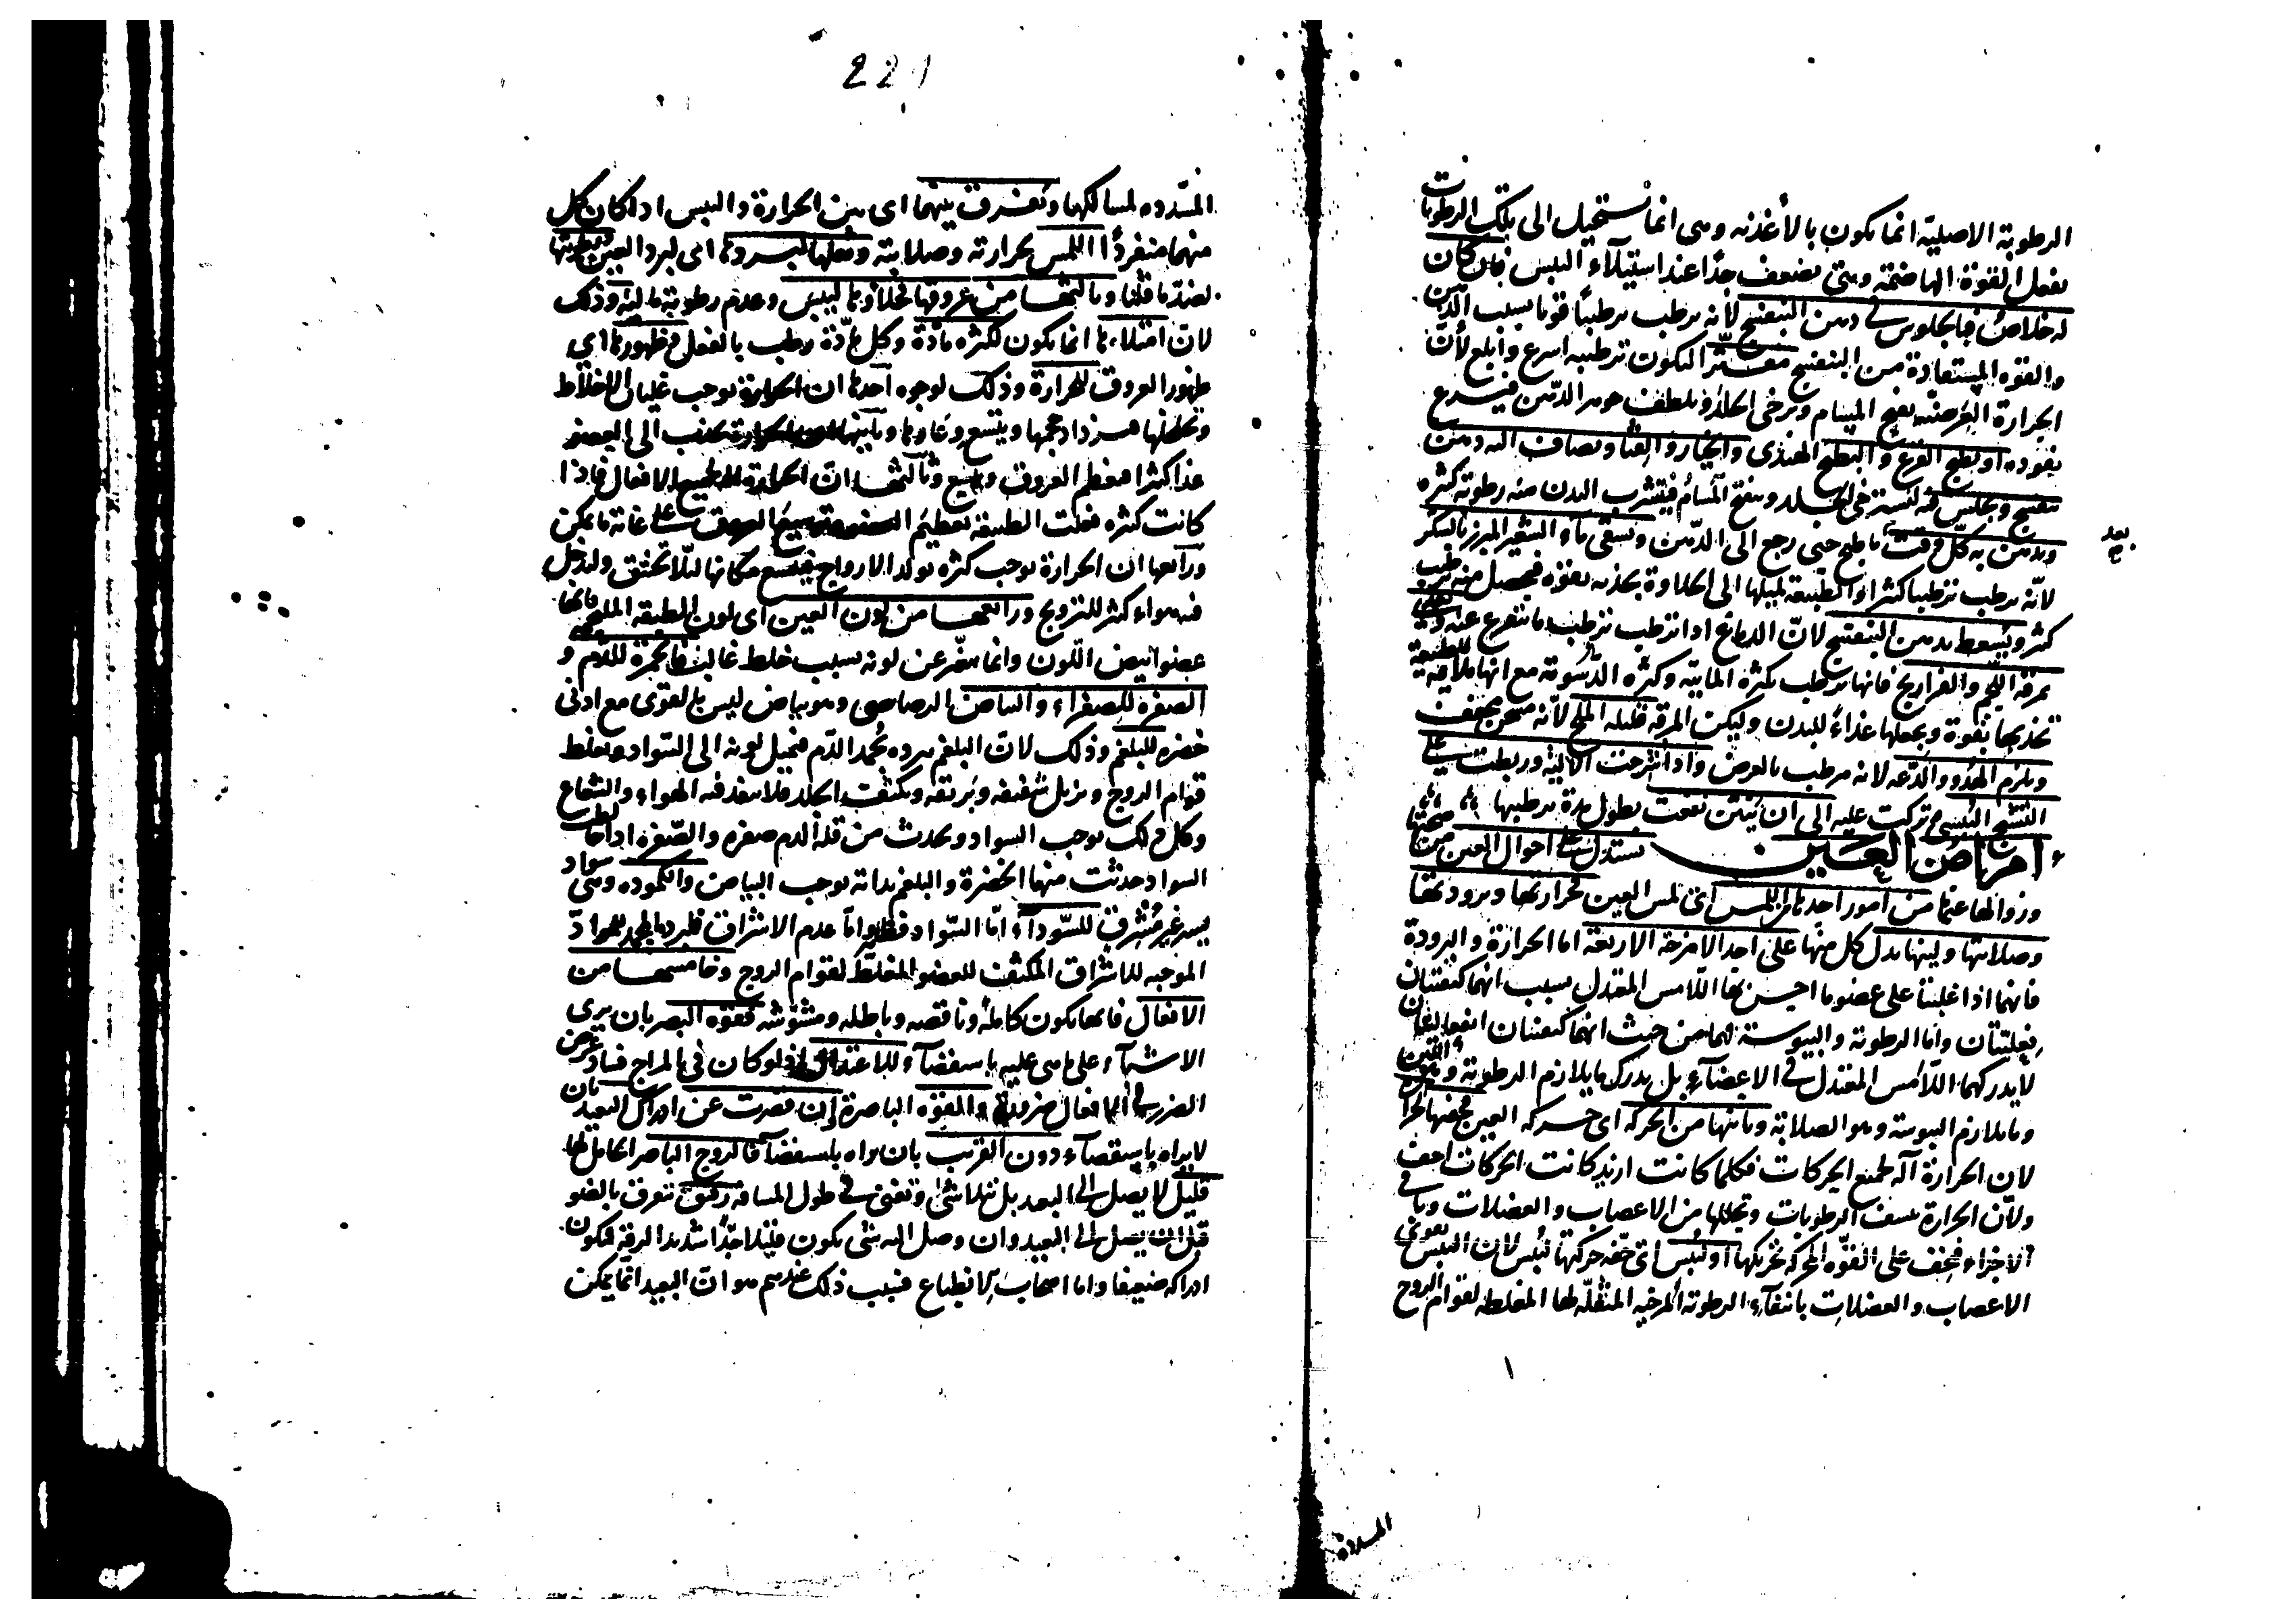 الرطوبة الاصلية انما تكون بالأغذية وهى انما تستحيل الى تلك الرطوبات
بفعل القوة الهاضمة وهى تضعف جدا عند استيلاء اليبس فان كان
له خلاص فبالجلوس فى دهن البنفسج لأنه يرطب ترطيبا قويا بسبب الدهن
والقوة المستفادة من البنفسج مفترا لتكون ترطيبه اسرع وابلغ لأن
الحرارة العرضية يفتح المسام ويرخى الجلد ويلطف جوهر الدهن فيسرع
نفوذه او يطبخ القرع والبطيخ الهندى والخيار والقثا ويضاف اليه دهن
بنفسج ويجلس فيه ليسترخى الجلد وينفتح المسام فيتشرب البدن منه رطوبة كثيرة
ويدهن به كل وقت ما طبخ حتى رجع الى الدهن ويسقى ماء الشعير المبرز بالسكر
بعد
لانه يرطب ترطيبا كثيرا والطبيعة لميلها الى الحلاوة يجذبه بقوة فيحصل منه ترطيب
كثير ويسعط بدهن البنفسج لان الدماغ اذا ترطب ترطب ما يتفرع عنه
مرقة اللحم والفراريج فانها ترطب بكثرة المائية وكثرة الدسومة مع انها ملاقية للطبيعة
تجذبها بقوة ويجعلها غذاء للبدن وليكن المرقة قليلة الملح لأنه مسخن مجفف
ويلزم الهدو والدعه لانه يرطب بالعرض واذا شرحت الالية وربطت على
التشنج اليبسى وتركت عليه الى ان ينتن نفعت بطول مدة ترطيبها
امراض العين يستدل على احوال العين من صحتها
وزوالها عنها من امور احدها من اللمس اى لمس العين بحرارتها وبرودتها
وصلابتها ولينها يدل كل منها على احد الامزجة الاربعة اما الحرارة والبرودة
فانهما اذا غلبتا على عضو ما احس بها اللامس المعتدل بسبب انهما كيفيتان
فعليتان واما الرطوبة واليبوسة فهما من حيث انهما كيفيتان انفعاليتان
لا يدركهما اللامس المعتدل فى الاعضاء بل يدرك ما يلازم الرطوبة وهو اللين
وما يلازم اليبوسة وهو الصلابة وثانيها من الحركة اى حركة العين فخفتها لحرارة
لان الحرارة آلة لجميع الحركات فكلما كانت ازيد كانت الحركات اخف
ولأن الحرارة ينشف الرطوبات ويحللها من الاعصاب والعضلات وباقى
الاجزاء فيخف على القوة المحركة تحريكها او ليبس اى خفة حركتها ليبس لان اليبس يقوى
الاعصاب والعضلات بانتفاء الرطوبة المرخية المثقلة لها المغلظة لقوام الروح
المسددة
221
المسددة لمسالكها وتفرق بينهما اى بين الحرارة واليبس اذا كان كل
منهما منفردا اللمس بحرارته وصلابته وثقلها لبرودة اى لبرد العين ورطوبتها
لضد ما قلنا وثالثها من عروقها فخلاؤها ليبس وعدم رطوبة مالية وذلك
لان امتلاءها انما يكون لكثرة مادة وكل مادة رطب بالفعل وظهورها اى
ظهور العروق لحرارة وذلك لوجوه احدها ان الحرارة توجب غليان الاخلاط
وتخلخلها فيزداد حجمها ويتسع وعاؤها وثانيها ان الحرارة تجذب الى العضو
غذا كثيرا فيعظم العروق ويتسع وثالثها ان الحرارة الافعال فاذا
كانت كثيرة فعلت الطبيعة تعظيم العضو وتوسيع العروق على غاية ما يمكن
ورابعها ان الحرارة توجب كثرة تولد الارواح فيتسع مكانها لئلا تختنق وليدخل
فيه هواء كثير للترويح ورابعها من لون العين اى لون الطبقة الملتحمة فانها
عضو ابيض اللون وانما يتغير عن لونه بسبب خلط غالب فالحمرة للدم و
الصفرة للصفراء والبياض الرصاصى وهو بياض ليس بالقوى مع ادنى
خضرة للبلغم وذلك لان البلغم ببرده يجمد الدم فيميل لونه الى السواد ويغلظ
قوام الروح ويزيل شفيفه وبريقه ويكثف الجلد فلا ينفذ فيه الهواء والشعاع
وكل ذلك يوجب السواد ويحدث من قلة الدم صفرة والصفرة اذا خالطت
السواد حدثت منها الخضرة والبلغم بذاته يوجب البياض والكمودة وهى سواد
يسير غير مشرق للسوداء اما السواد فظاهر واما عدم الاشراق فلبردها المجمد للمواد
الموجبه للاشراق المكثف للعضو المغلظ لقوام الروح وخامسها من
الافعال فانها يكون كاملة وناقصة وباطلة ومشوشة فقوة البصر بان يرى
الاشياء على ما هى عليه باستقصاء للاعتدال اذ لو كان فى المزاج فساد عرض
الضرر فى الافعال ضرورة والقوة الباصرة ان قصرت عن ادراك البعيد بان
لا يراه باستقصاء دون القريب بان يراه باستقصاء فالروح الباصر الحامل لها
قليل لا يصل الى البعيد بل يتلاشى وتفنى فى طول المسافة رقيق تتفرق بالضوء
قبل ان يصل الى البعيد وان وصل اليه شئ يكون قليلا جدا شديد الرقة فيكون
ادراكه ضعيفا واما اصحاب الانطباع فسبب ذلك عندهم هو ان البعيد انما يمكن